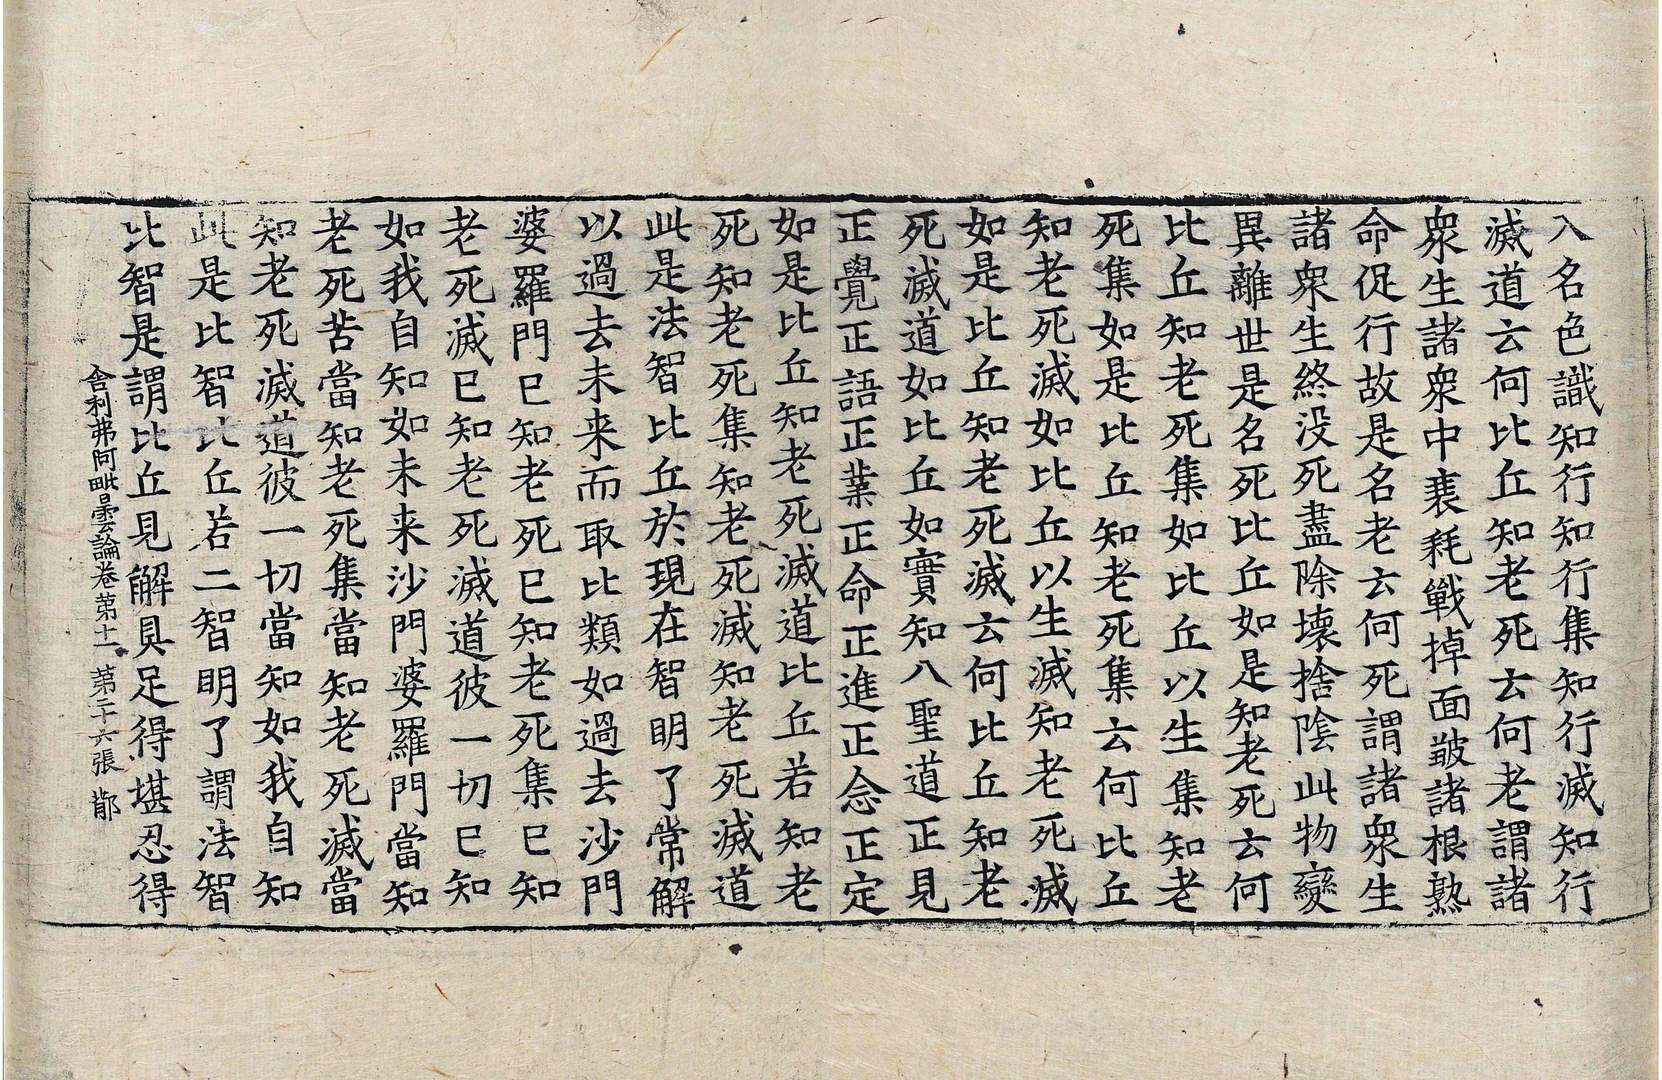 入名色識知行知行集知行滅知行
滅道云何比丘知老死云何老謂諸
衆生諸衆中衰秏戰掉面皺諸根熟
命促行故是名老云何死謂諸衆生
諸衆生終没死盡除壞捨陰此物變
異離世是名死比丘如是知老死云何
比丘知老死集如比丘以生集知老
死集如是比丘知老死集云何比丘
知老死滅如比丘以生滅知老死滅
如是比丘知老死滅云何比丘知老
死滅道如比丘如實知八聖道正見
正覺正語正業正命正進正念正定
如是比丘知老死滅道比丘若知老
死知老死集知老死滅知老死滅道
此是法智比丘於現在智明了常解
以過去未来而取比類如過去沙門
婆羅門已知老死已知老死集已知
老死滅已知老死滅道彼一切已知
如我自知如未来沙門婆羅門當知
老死苦當知老死集當知老死滅當
知老死滅道彼一切當知如我自知
此是比智比丘若二智明了謂法智
比智是謂比丘見解具足得堪忍得
舍利弗阿毗曇論卷第十一 第二十六張 鄁